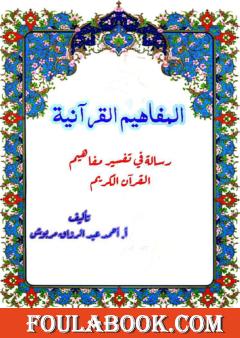 المفاهيم القرآنية
رسالة في تفسير مفاهيم
القرآن الكريم
تأليف
أ. أحمد عبد الرزاق
FOULABOOK.COM